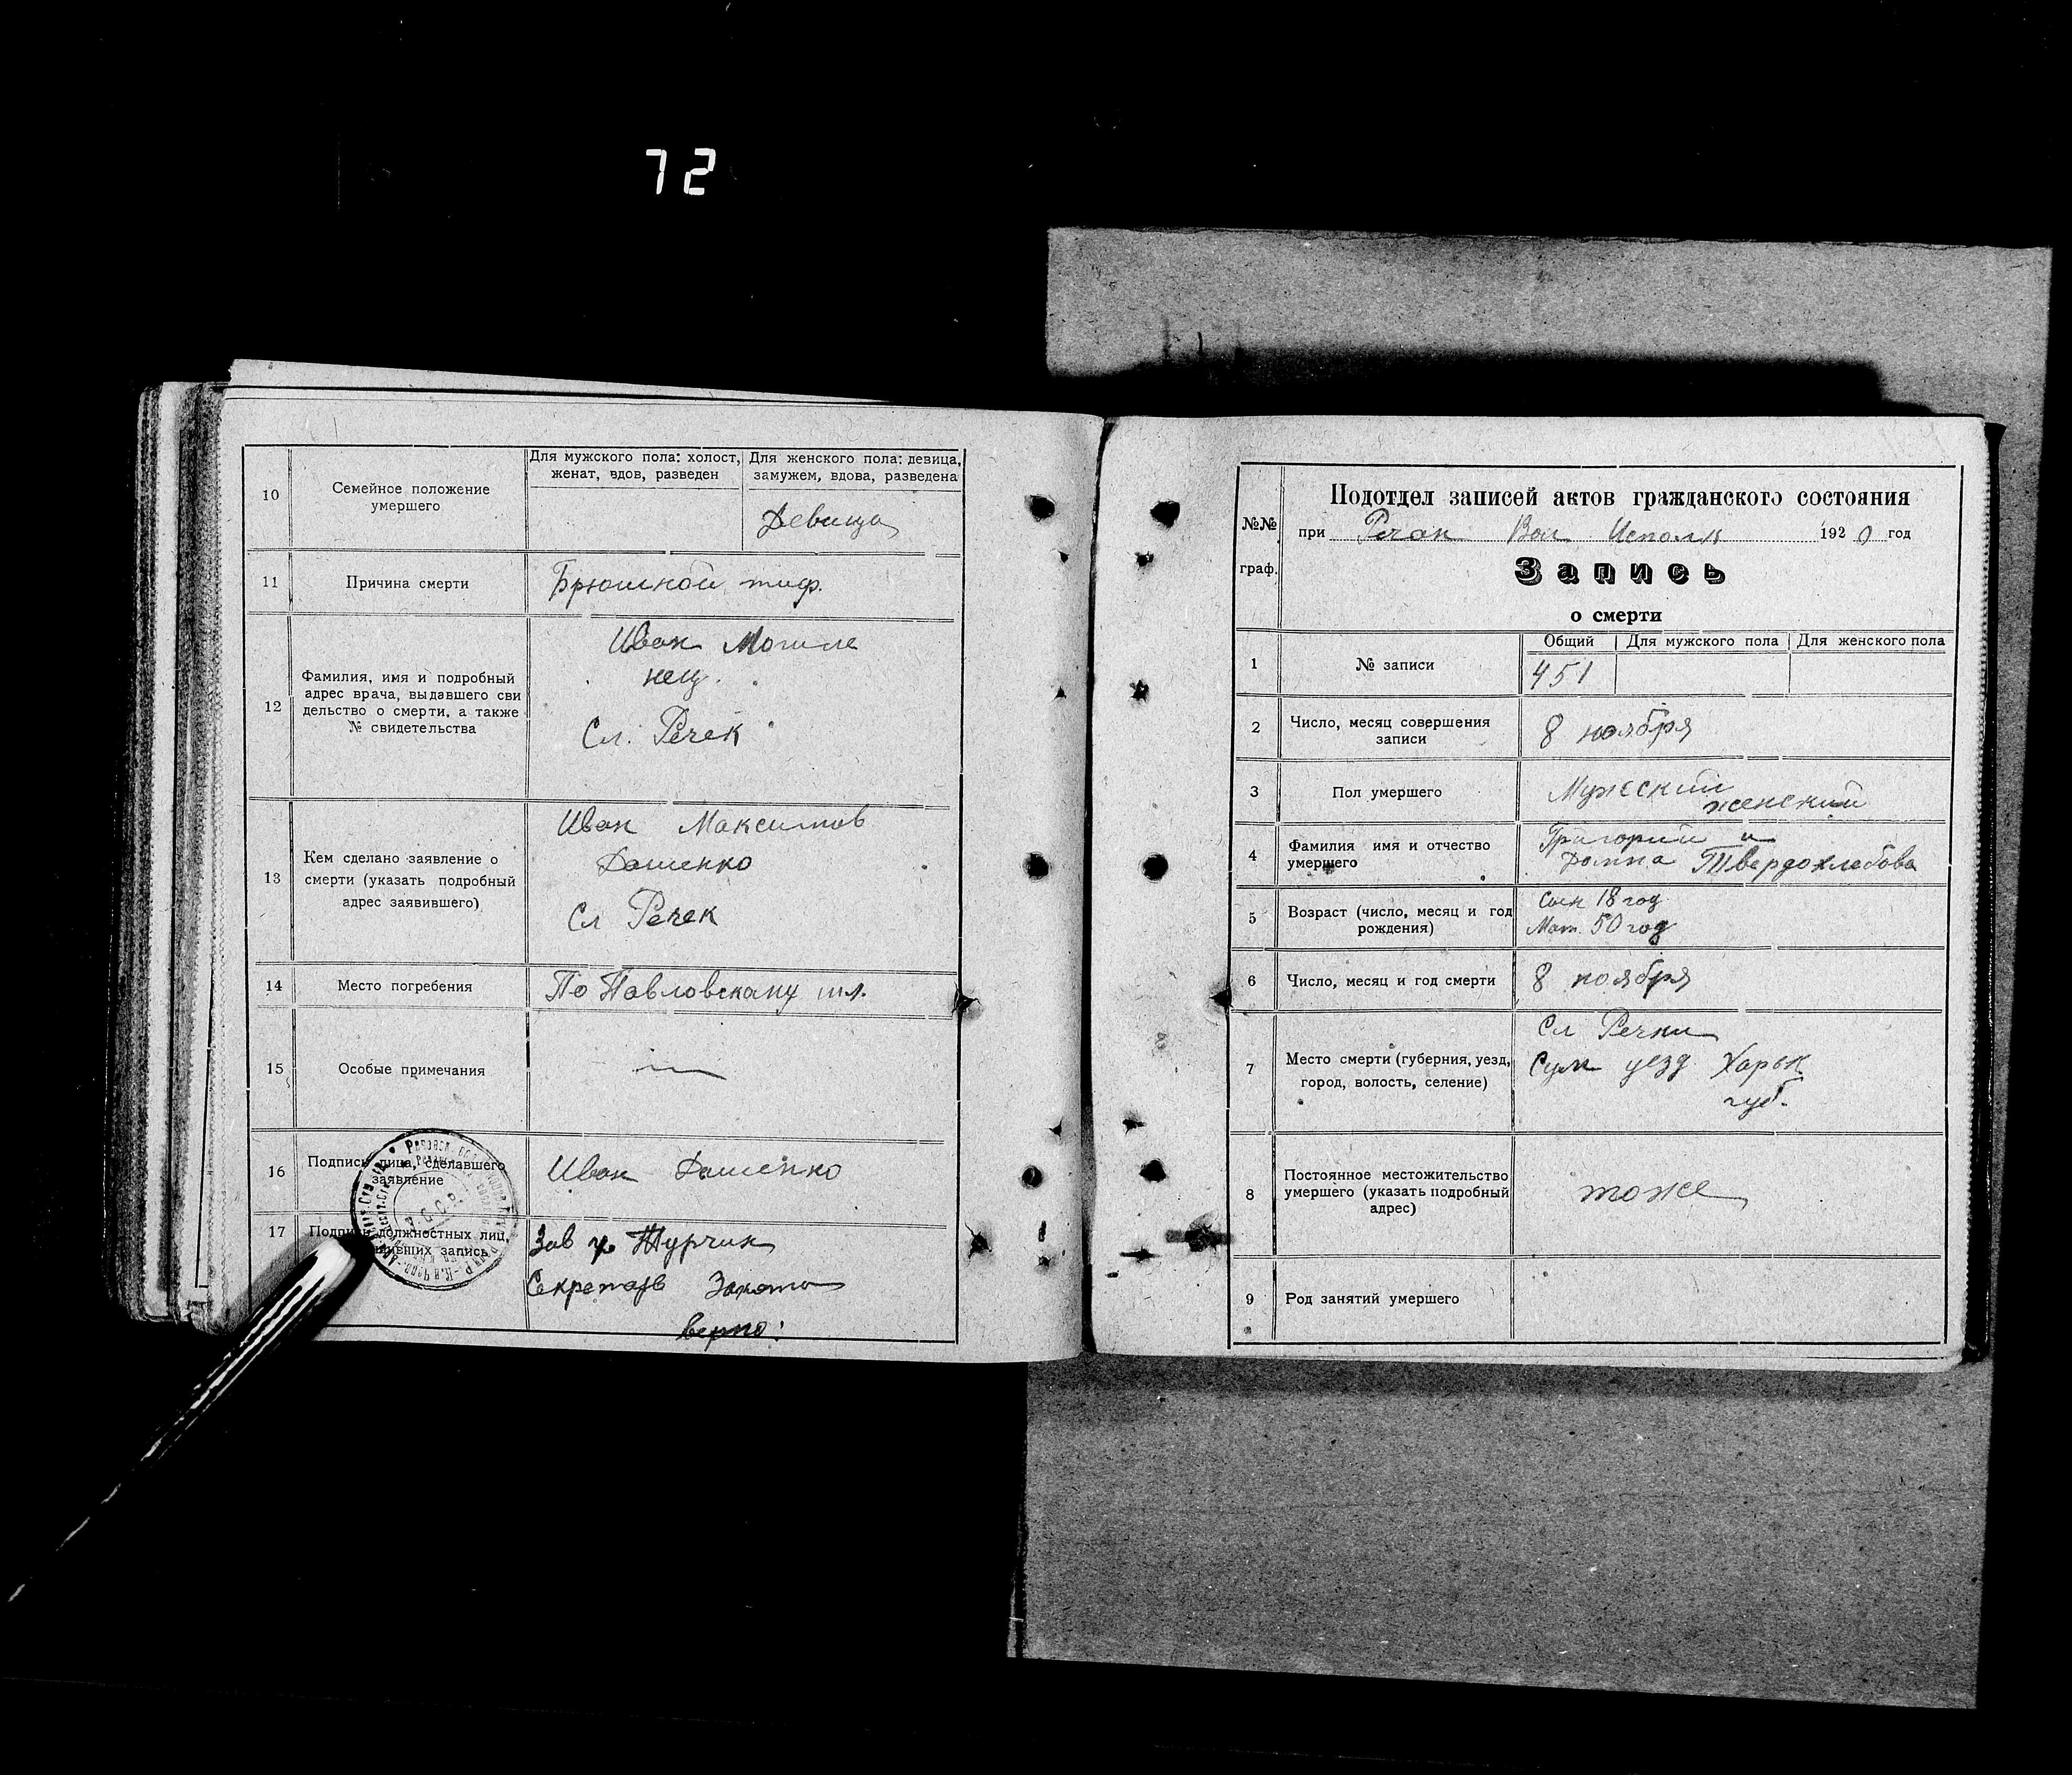 72
10
Семейное положение
умершего
Для мужского пола: холост,
женат, вдов, разведен
Для женского пола: девица,
замужем, вдова, разведена
Девица
11
Причина смерти
Брюшной тиф.
12
Фамилия, имя и подробный
адрес врача, выдавшего сви
дельство о смерти, а также
№ свидетельства
Иван Могиле
нец.
Сл. Речек
13
Кем сделано заявление о
смерти (указать подробный
адрес заявившего)
Иван Максимов
Дашенко
Сл Речек
14
Место погребения
По Павловскому шл.
15
Особые примечания
16
Подпись лица, сделавшего
заявление
Иван Дашенко
17
Подпись должностных лиц,
запись
Зав Турчин
Секретарь
верно:
№№
граф.
Подотдел записей актов гражданского состояния
при Речан Вол Исполк 1920 год
Запись
о смерти
1
№ записи
Общий
Для мужского пола
Для женского пола
451
2
Число, месяц совершения
записи
8 ноября
3
Пол умершего
Мужеский
женский
4
Фамилия имя и отчество
умершего
Григорий и
Домна Твердохлебова
5
Возраст (число, месяц и год
рождения)
Сын 18 год
Мат. 50 год
6
Число, месяц и год смерти
8 ноября
7
Место смерти (губерния, уезд,
город, волость, селение)
Сл Речки
Сум уезд Харьк
губ.
8
Постоянное местожительство
умершего (указать подробный
адрес)
тоже
9
Род занятий умершего